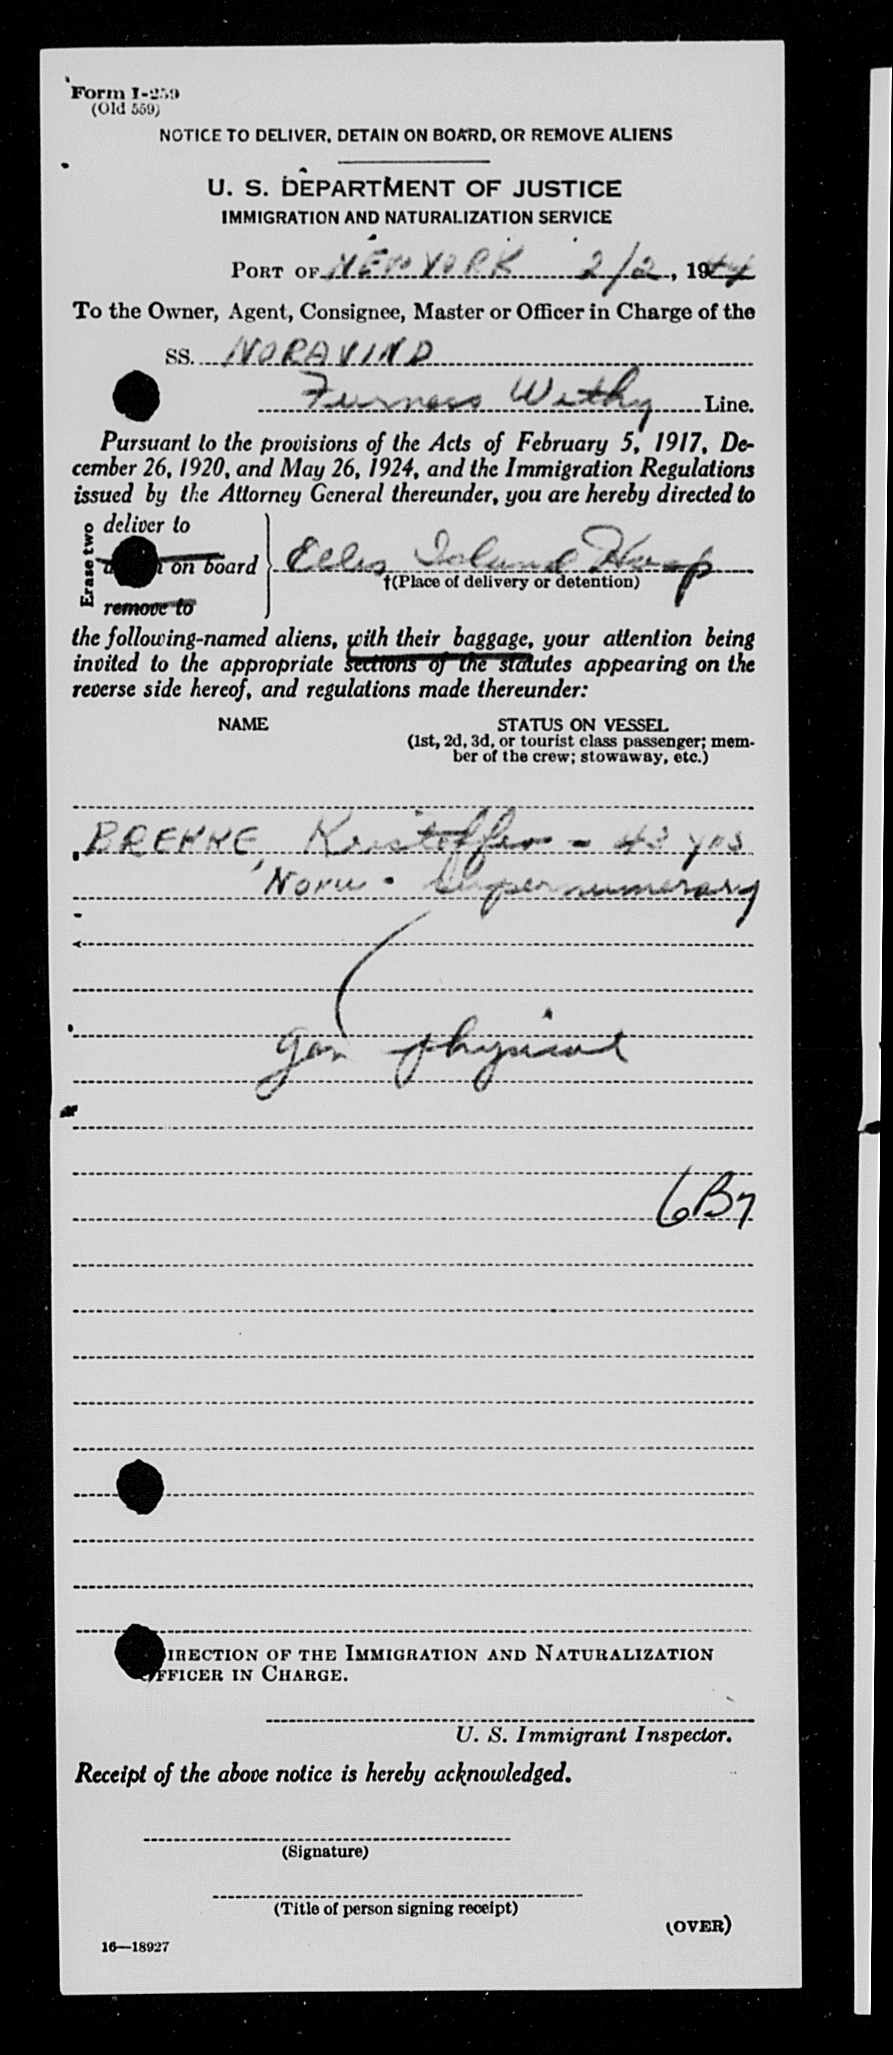 Form I-259
(Old 559)
NOTICE TO DELIVER, DETAIN ON BOARD, OR REMOVE ALIENS
U. S. DEPARTMENT OF JUSTICE
IMMIGRATION AND NATURALIZATION SERVICE
PORT OF NEW YORK 2/2, 1944
To the Owner, Agent, Consignee, Master or Officer in Charge of the
SS. NORAVIND
Furness Withy Line.
Pursuant to the provisions of the Acts of February 5, 1917, De-
cember 26, 1920, and May 26, 1924, and the Immigration Regulations
issued by the Attorney General thereunder, you are hereby directed to
Erase two
deliver to
on board Ellis Island Hosp
†(Place of delivery or detention)
remove to
the following-named aliens, with their baggage, your attention being
invited to the appropriate sections of the statutes appearing on the
reverse side hereof, and regulations made thereunder:
NAME STATUS ON VESSEL
(1st, 2d, 3d, or tourist class passenger; mem-
ber of the crew; stowaway, etc.)
BREKKE, Kristoffer - 43 yrs
Norw - Supernumerary
gen physical
6B7
IRECTION OF THE IMMIGRATION AND NATURALIZATION
OFFICER IN CHARGE.
U. S. Immigrant Inspector.
Receipt of the above notice is hereby acknowledged.
(Signature)
(Title of person signing receipt)
(OVER)
16—18927